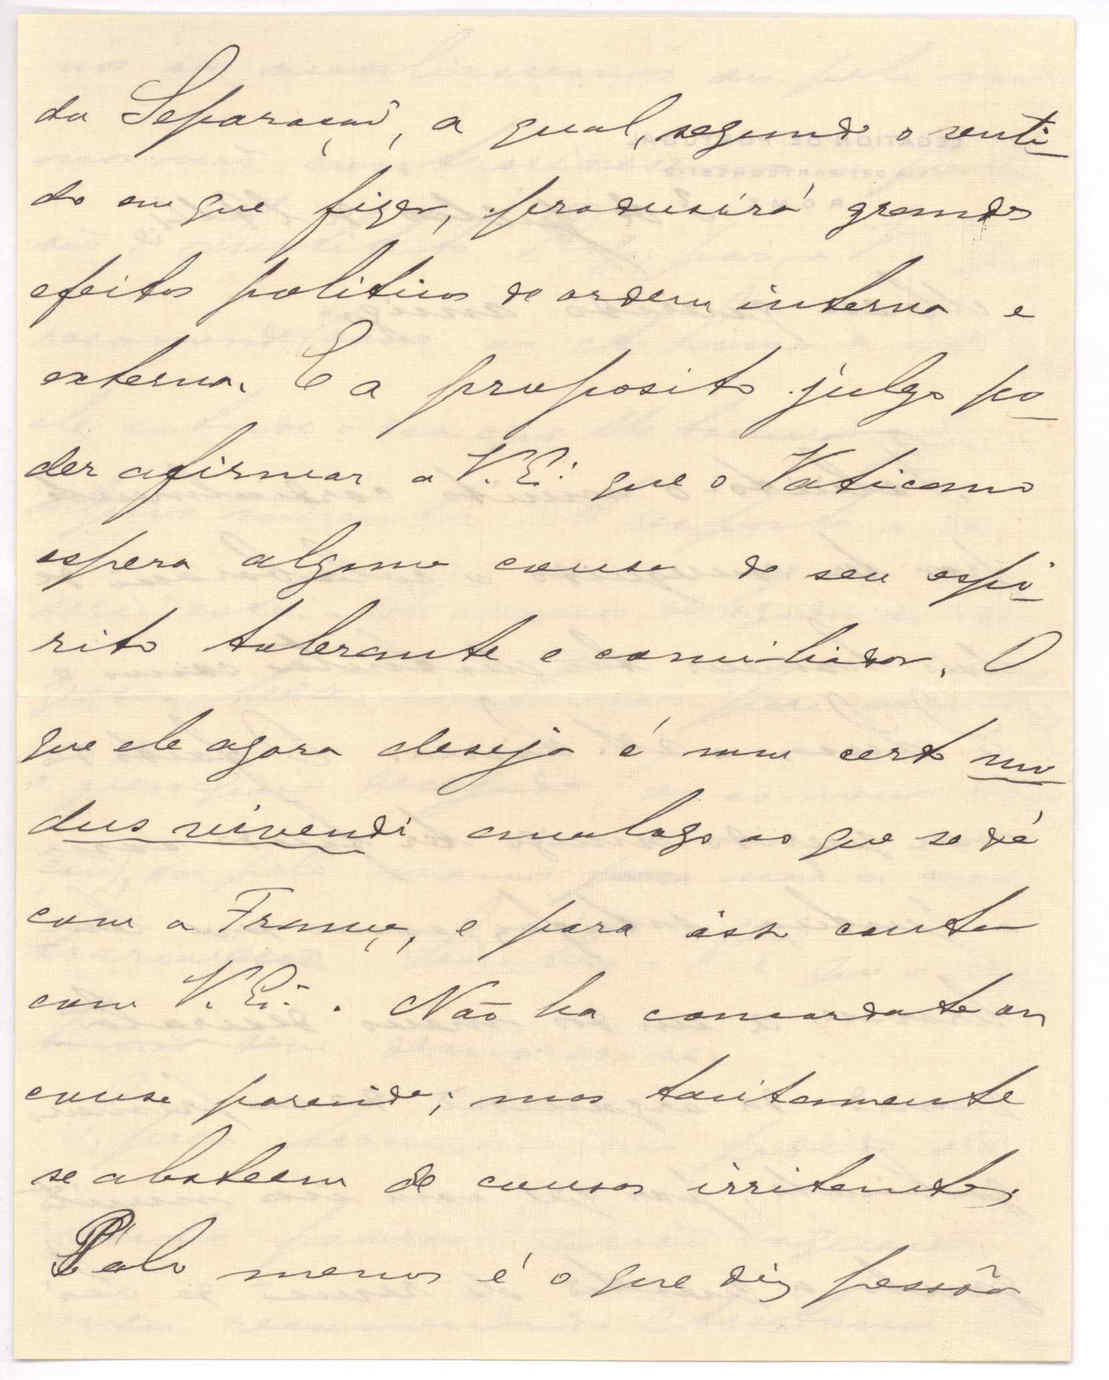 da Separação, a qual, segundo o senti-
do em que fizer, produsirá grandes
efeitos politicos de ordem interna e
externa. E a proposito julgo po-
der afirmar a V. Ex.ª que o Vaticano
espera alguma cousa do seu espi-
rito tolerante e conciliador. O
que ele agora deseja é um certo mo
dus vivendi analogo ao que se dá
com a França, e para isso conta
com V. Ex.ª. Não ha concordata ou
cousa parecida; mas tacitamente
se absteem de cousas irritantes.
Pelo menos é o que diz pessôa